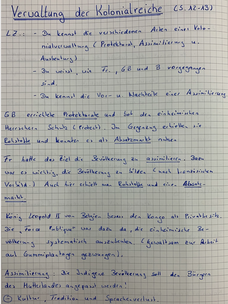 Verwaltung der Kolonialreiche (S. 12-13)
LZ: - Du kennst die verschiedenen Arten einer Kolo-
nialverwaltung (Protektorat, Assimilierung u.
Ausbeutung)
- Du weisst, wie Fr., GB und B vorgegangen
sind.
- Du kennst die Vor- u. Nachteile einer Assimilierung
GB errichtete Protektorate und bot den einheimischen
Herrschern Schutz (Protect). Im Gegenzug erhielten sie
Rohstoffe und konnten es als Absatzmarkt nutzen.
Fr hatte das Ziel die Bevölkerung zu assimilieren. Dann
war es wichtig, die Bevölkerung zu bilden (nach
Vorbild). Auch hier erhielt man Rohstoffe und einen Absatz-
markt.
König Leopold II von Belgien besass den Kongo als Privatbesitz.
Die "Force Publique" war dazu da, die einheimische Be-
völkerung systematisch auszubeuten (gewaltsam zur Arbeit
auf Gummiplantagen gezwungen).
Assimilierung: Die indigene Bevölkerung soll den Bürgern
des Mutterlandes angepasst werden!
Kultur, Tradition und Sprachverlust.